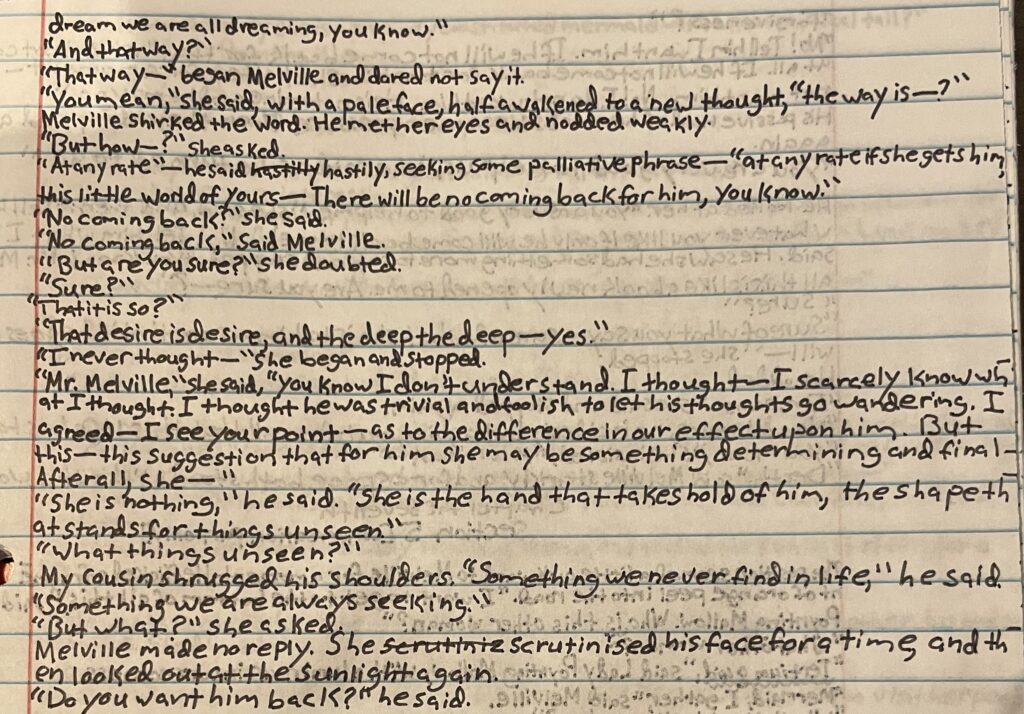 dream we are all dreaming, you know."
"And that way?"
"That way—" began Melville and dared not say it.
"You mean," she said, with a pale face, half awakened to a new thought, "the way is—?"
Melville shirked the word. He met her eyes and nodded weakly.
"But how—?" she asked.
"At any rate"—he said hastitly hastily, seeking some palliative phrase—"at any rate if she gets him,
this little world of yours— There will be no coming back for him, you know."
"No coming back?" she said.
"No coming back," said Melville.
"But are you sure?" she doubted.
"Sure?"
"That it is so?"
"That desire is desire, and the deep the deep—yes."
"I never thought—" she began and stopped.
"Mr. Melville," she said, "you know I don't understand. I thought—I scarcely know wh
at I thought. I thought he was trivial and foolish to let his thoughts go wandering. I
agreed—I see your point—as to the difference in our effect upon him. But
this—this suggestion that for him she may be something determining and final—
After all, she—"
"She is nothing," he said. "She is the hand that takes hold of him, the shape th
at stands for things unseen."
"What things unseen?"
My cousin shrugged his shoulders. "Something we never find in life," he said.
"Something we are always seeking."
"But what?" she asked.
Melville made no reply. She scrutiniz scrutinised his face for a time, and th
en looked out at the sunlight again.
"Do you want him back?" he said.